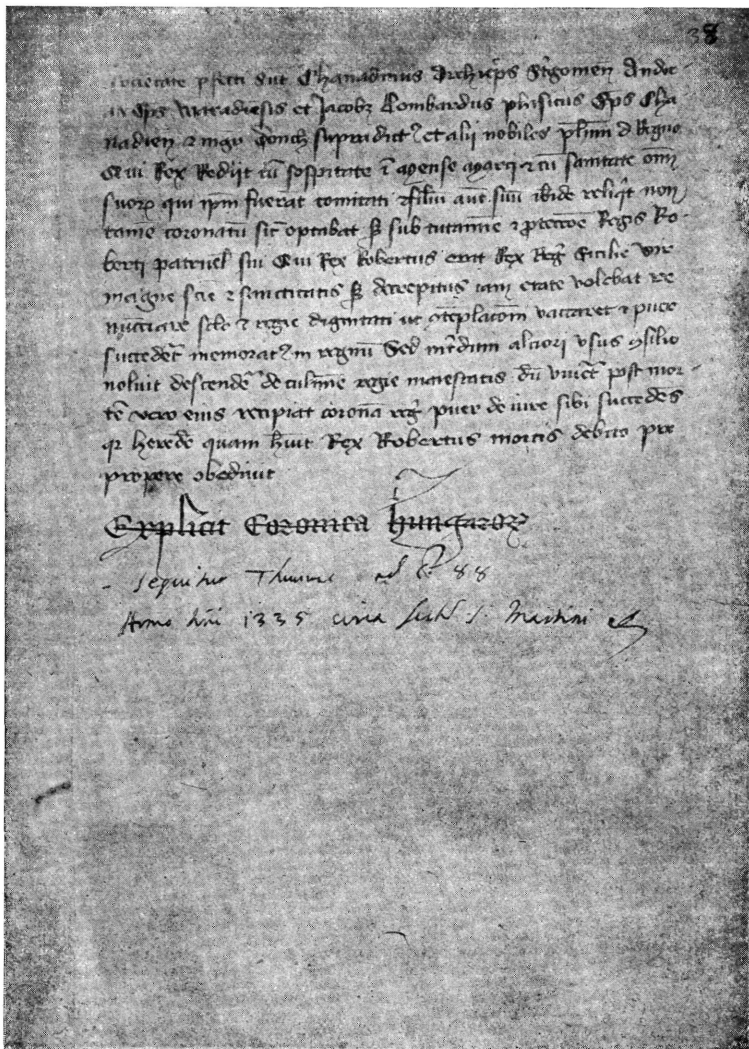 38
societate p̄fecti sūt Chanadinus Archiep̄s Strigonien̄ Andre
as Ep̄s Waradiēsis et Jacobꝫ Lombardus phisicus Ep̄s Cha
nadien̄ ⁊ supradict᷒ et alii nobiles pl̄imi d̄ Regno
Qui Rex Rediit cū sospitate ī mense marcij ⁊ cū sanitate om̄i
suorꝝ qui ip̄m fuerāt comitati ⁊ filiū aut̄ suū ibidē reliq̄t non
tamē coronatū sic̄ optabat sꝫ sub tutamīe ⁊ ꝓtectōe Regis Ro-
berti patruel̄ sui Qui Rex Robertus erat Rex Reḡ Sicilie vir
magne scīe ⁊ sanctitatis sꝫ decrepitus iam etate volebat re
nūciare sc̄lo ⁊ regie dignitati ut ꝯtēplacōni vacaret ⁊ puer
succedēt memorat᷒ in regnū Sed alciori vsus ꝯsilio
noluit descendē de culmīe regie maiestatis dū viuēt post mor-
tē vero eius recipiat coronā reḡ puer de iure sibi succedēs
qꝛ heredē quam h̄uit Rex Robertus mortis debito pre
propere obediuit
Explicit Coronica hungarorꝝ
sequitur ad 88
Anno dn̄i 1335 circa fest̄ S. Martini